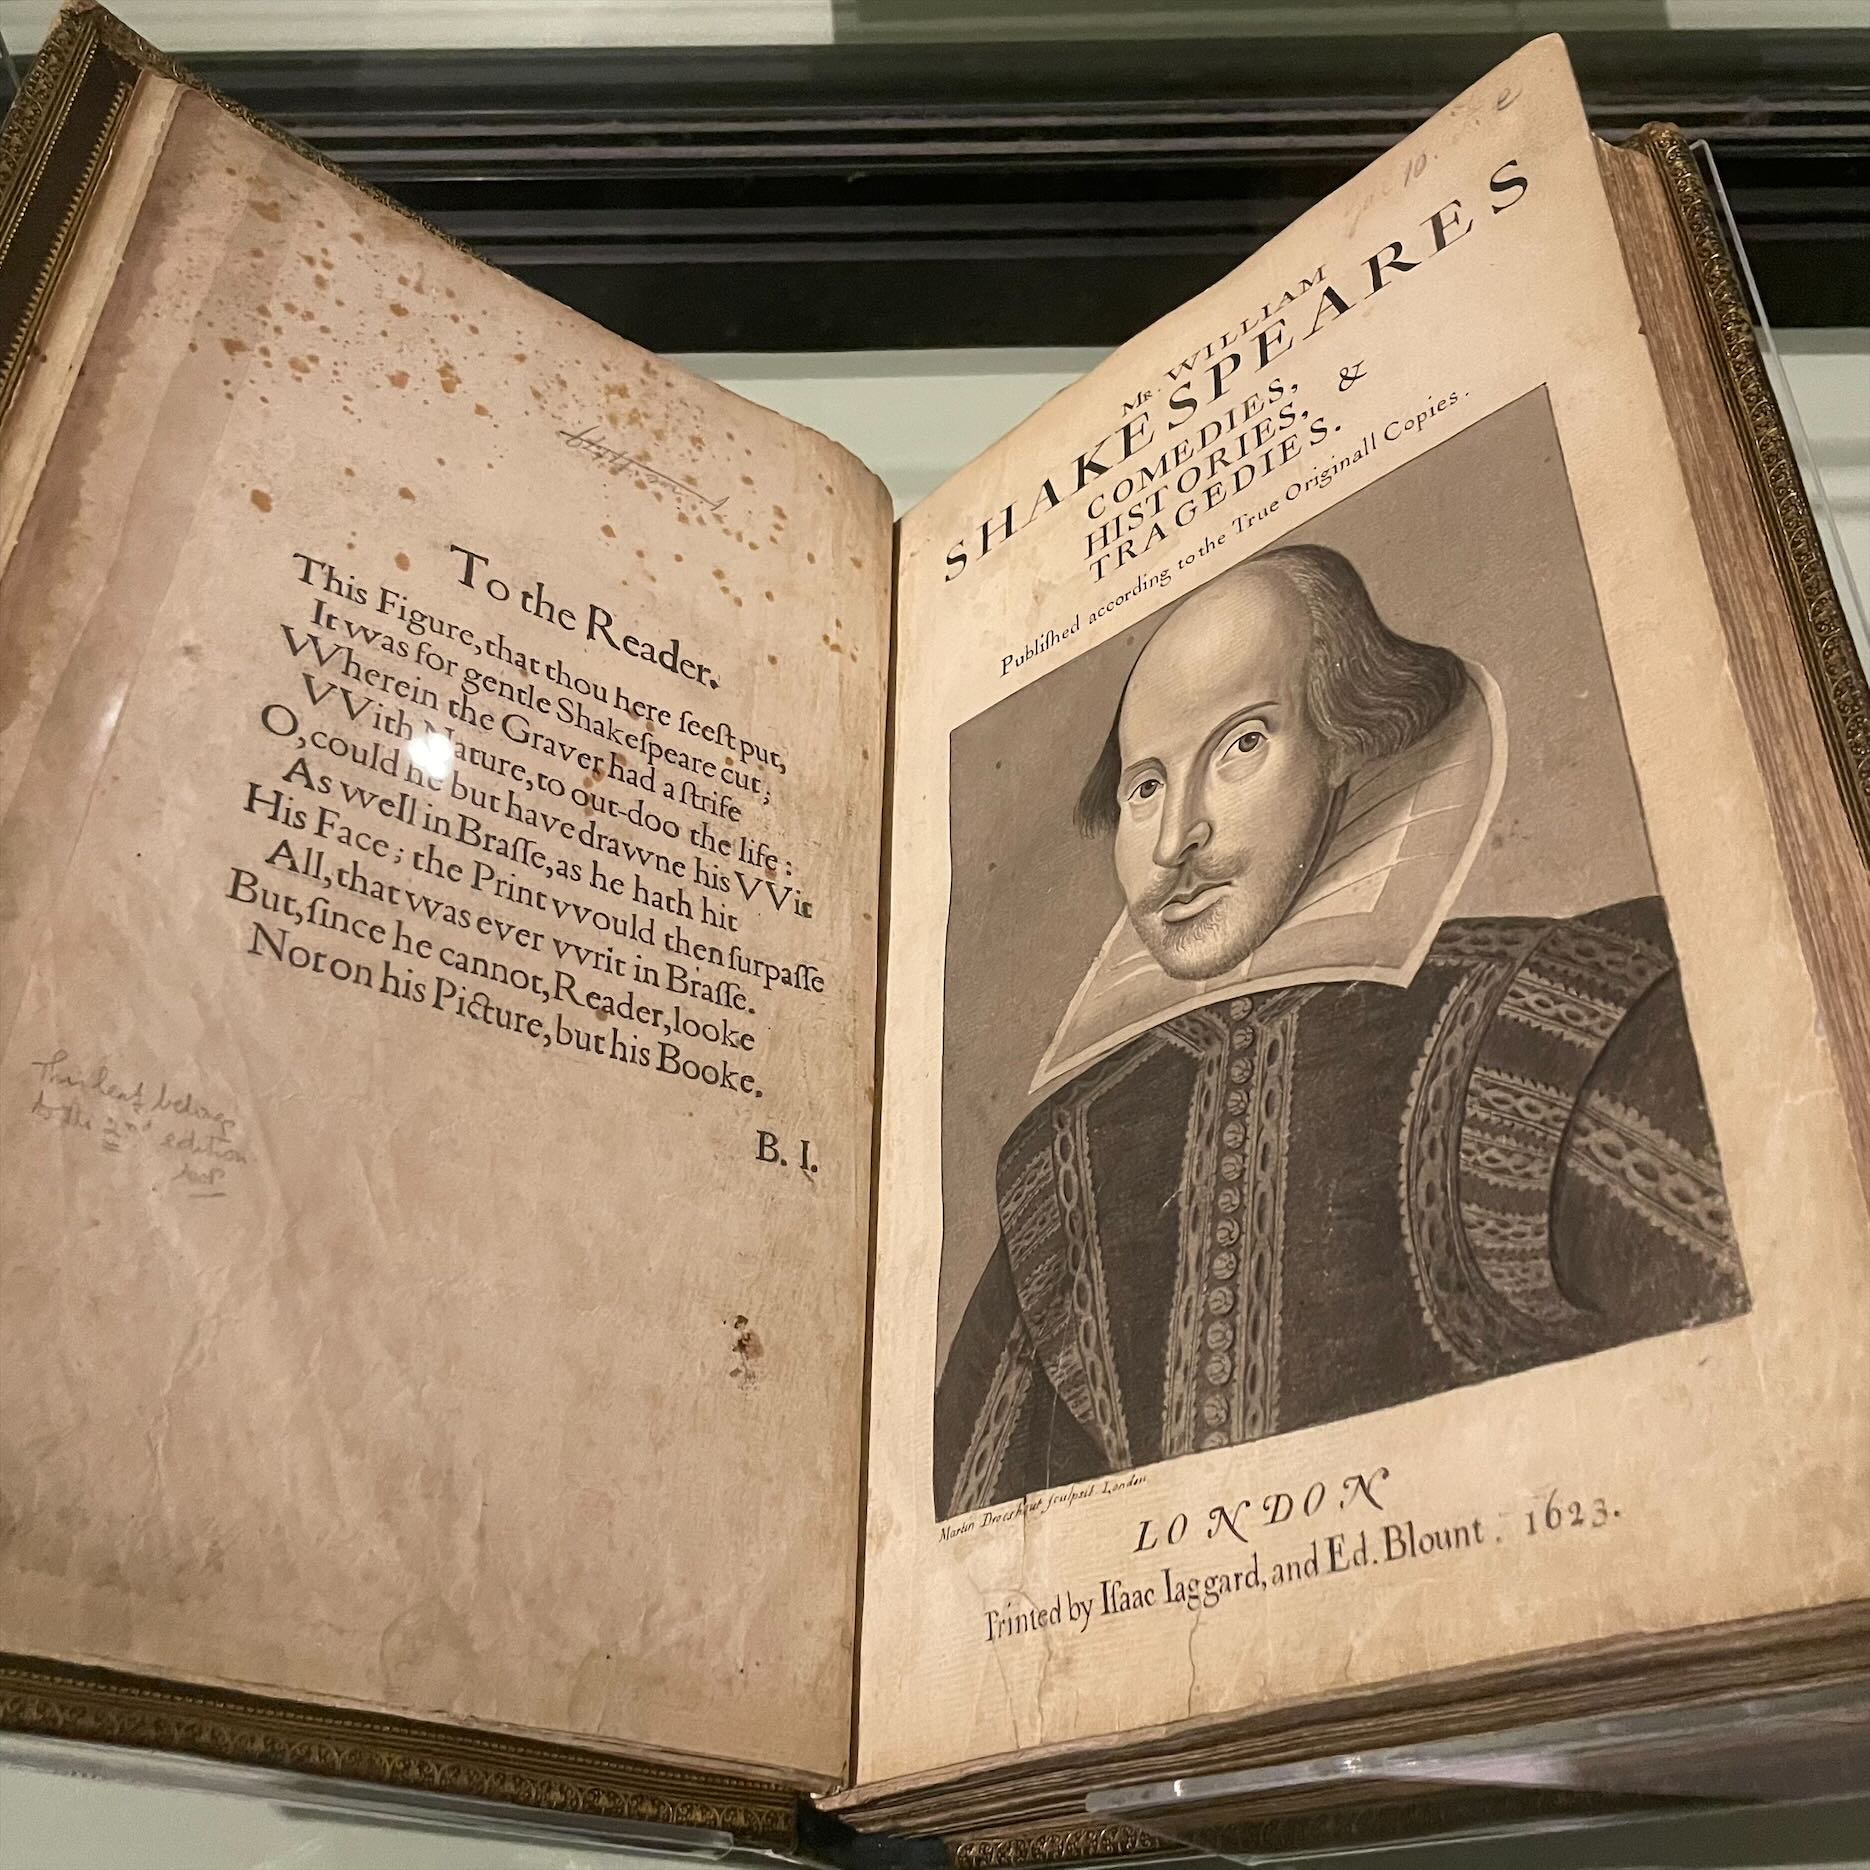 To the Reader.
This Figure, that thou here ſeeſt put,
It vvas for gentle Shakeſpeare cut;
VVherein the Graver had a ſtrife
VVith Nature, to out-doo the life:
O, could he but have dravvne his VVit
As vvell in Braſſe, as he hath hit
His Face; the Print vvould then ſurpaſſe
All, that vvas ever vvrit in Braſſe.
But, ſince he cannot, Reader, looke
Not on his Picture, but his Booke.
B. I.
This leaf belongs
to the 2nd edition
Mr. WILLIAM
SHAKESPEARES
COMEDIES,
HISTORIES, &
TRAGEDIES.
Publiſhed according to the True Originall Copies.
Martin Droeshout ſculpsit London
LONDON
Printed by Iſaac Iaggard, and Ed. Blount. 1623.